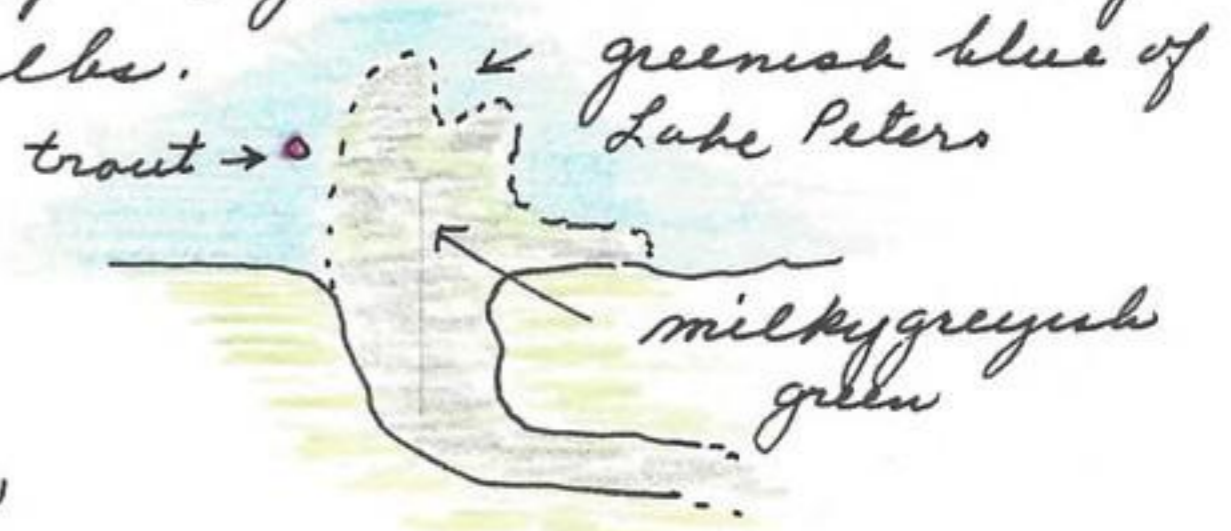 lbs.
greenish blue of
Lake Peters
trout
milky greyish
green